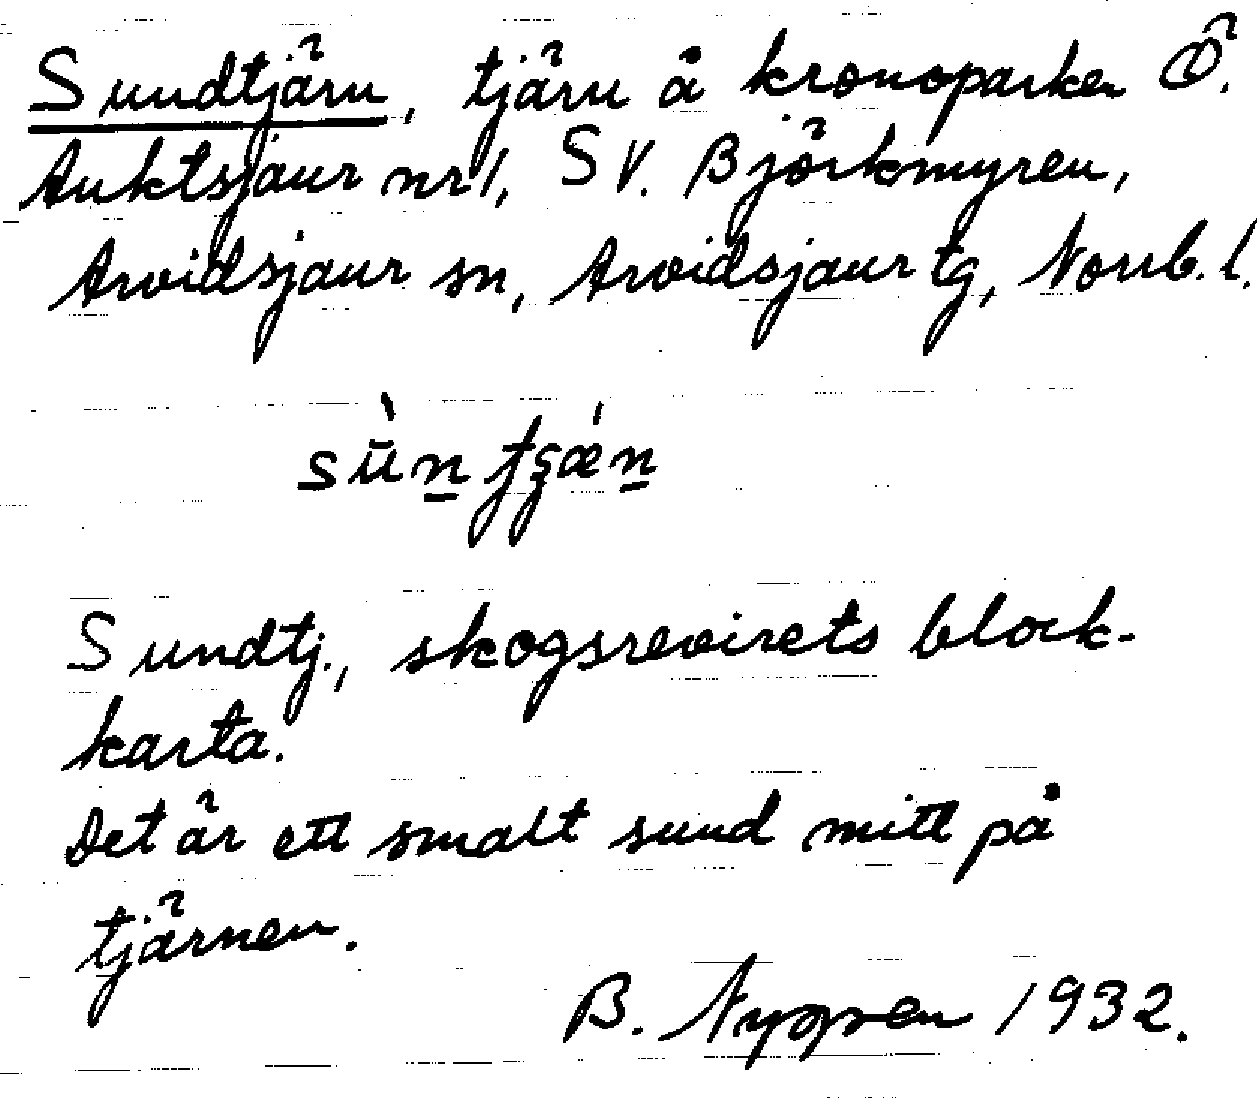 Sundtjärn, tjärn å kronoparken Ö.
Auktsjaur nr 1, SV. Björkmyren,
Arvidsjaur sn, Arvidsjaur tg, Norrb. l.
Sundtj., skogsrevirets block-
karta.
Det är ett smalt sund mitt på
tjärnen.
B. Nygren 1932.